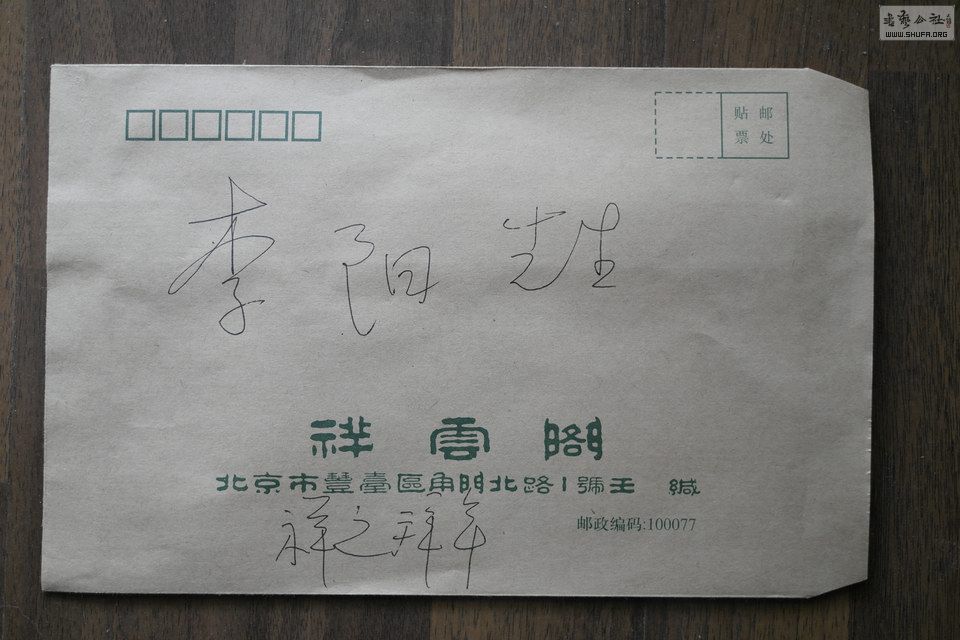 书艺公社
WWW.SHUFA.ORG
贴 邮
票 处
李阳先生
祥雲閣
北京市豐臺區角門北路1號王 缄
祥之拜年
邮政编码:100077